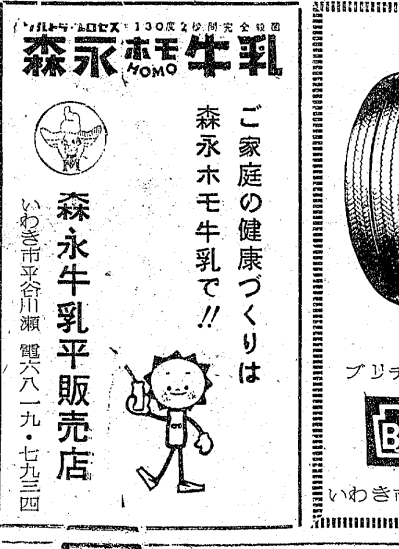 ウルトラ・プロセス＝130度2秒間完全殺菌
森永ホモ牛乳
HOMO
ご家庭の健康づくりは
森永ホモ牛乳で!!
森永牛乳平販売店
いわき市平谷川瀬 電六八一九・七九三四
ブリヂ
B
いわき市